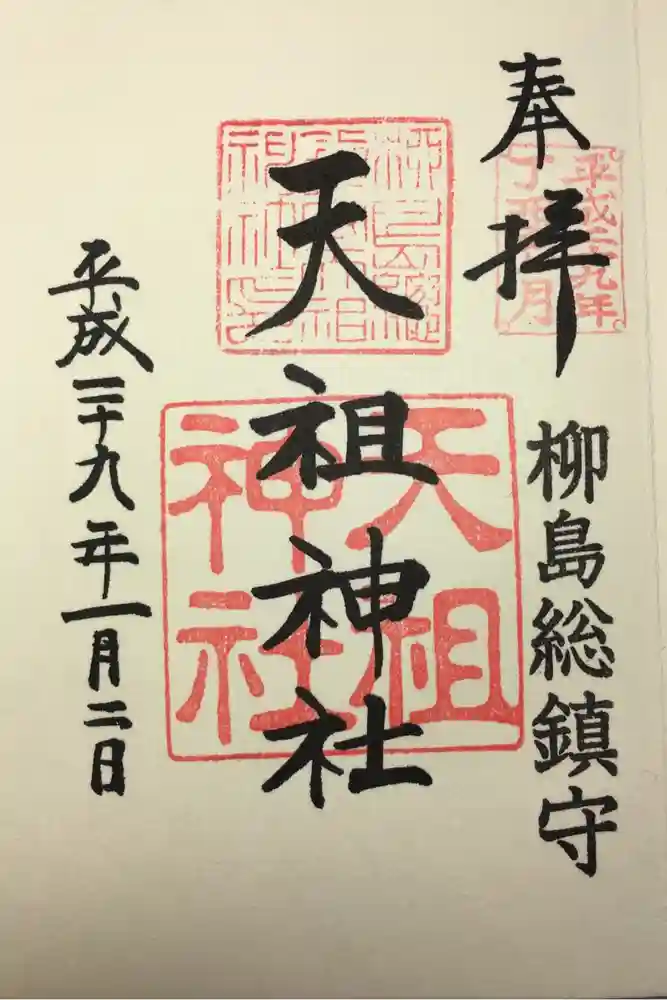 奉拝
平成二十九年
丁酉正月
柳島総鎮守
天祖神社
天祖
神社
平成二十九年一月二日